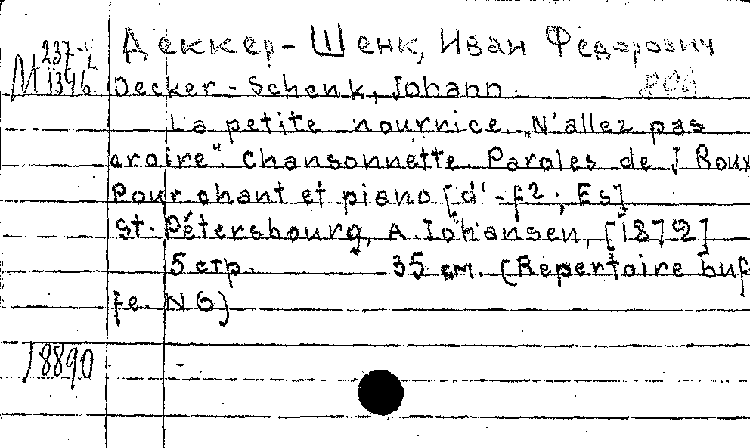 Деккер-Шенк, Иван Федорович
М 237-
1346
Decker-Schenk, Johann
La petite nourrice „N'allez pas
croire". Chansonnette. Paroles de J Roux
Pour chant et piano [d'-f2; Es]
St.-Pétersbourg, A. Iohansen, [1872]
5 стр. 35 см. (Repertoire buf
fe. N 6)
18890